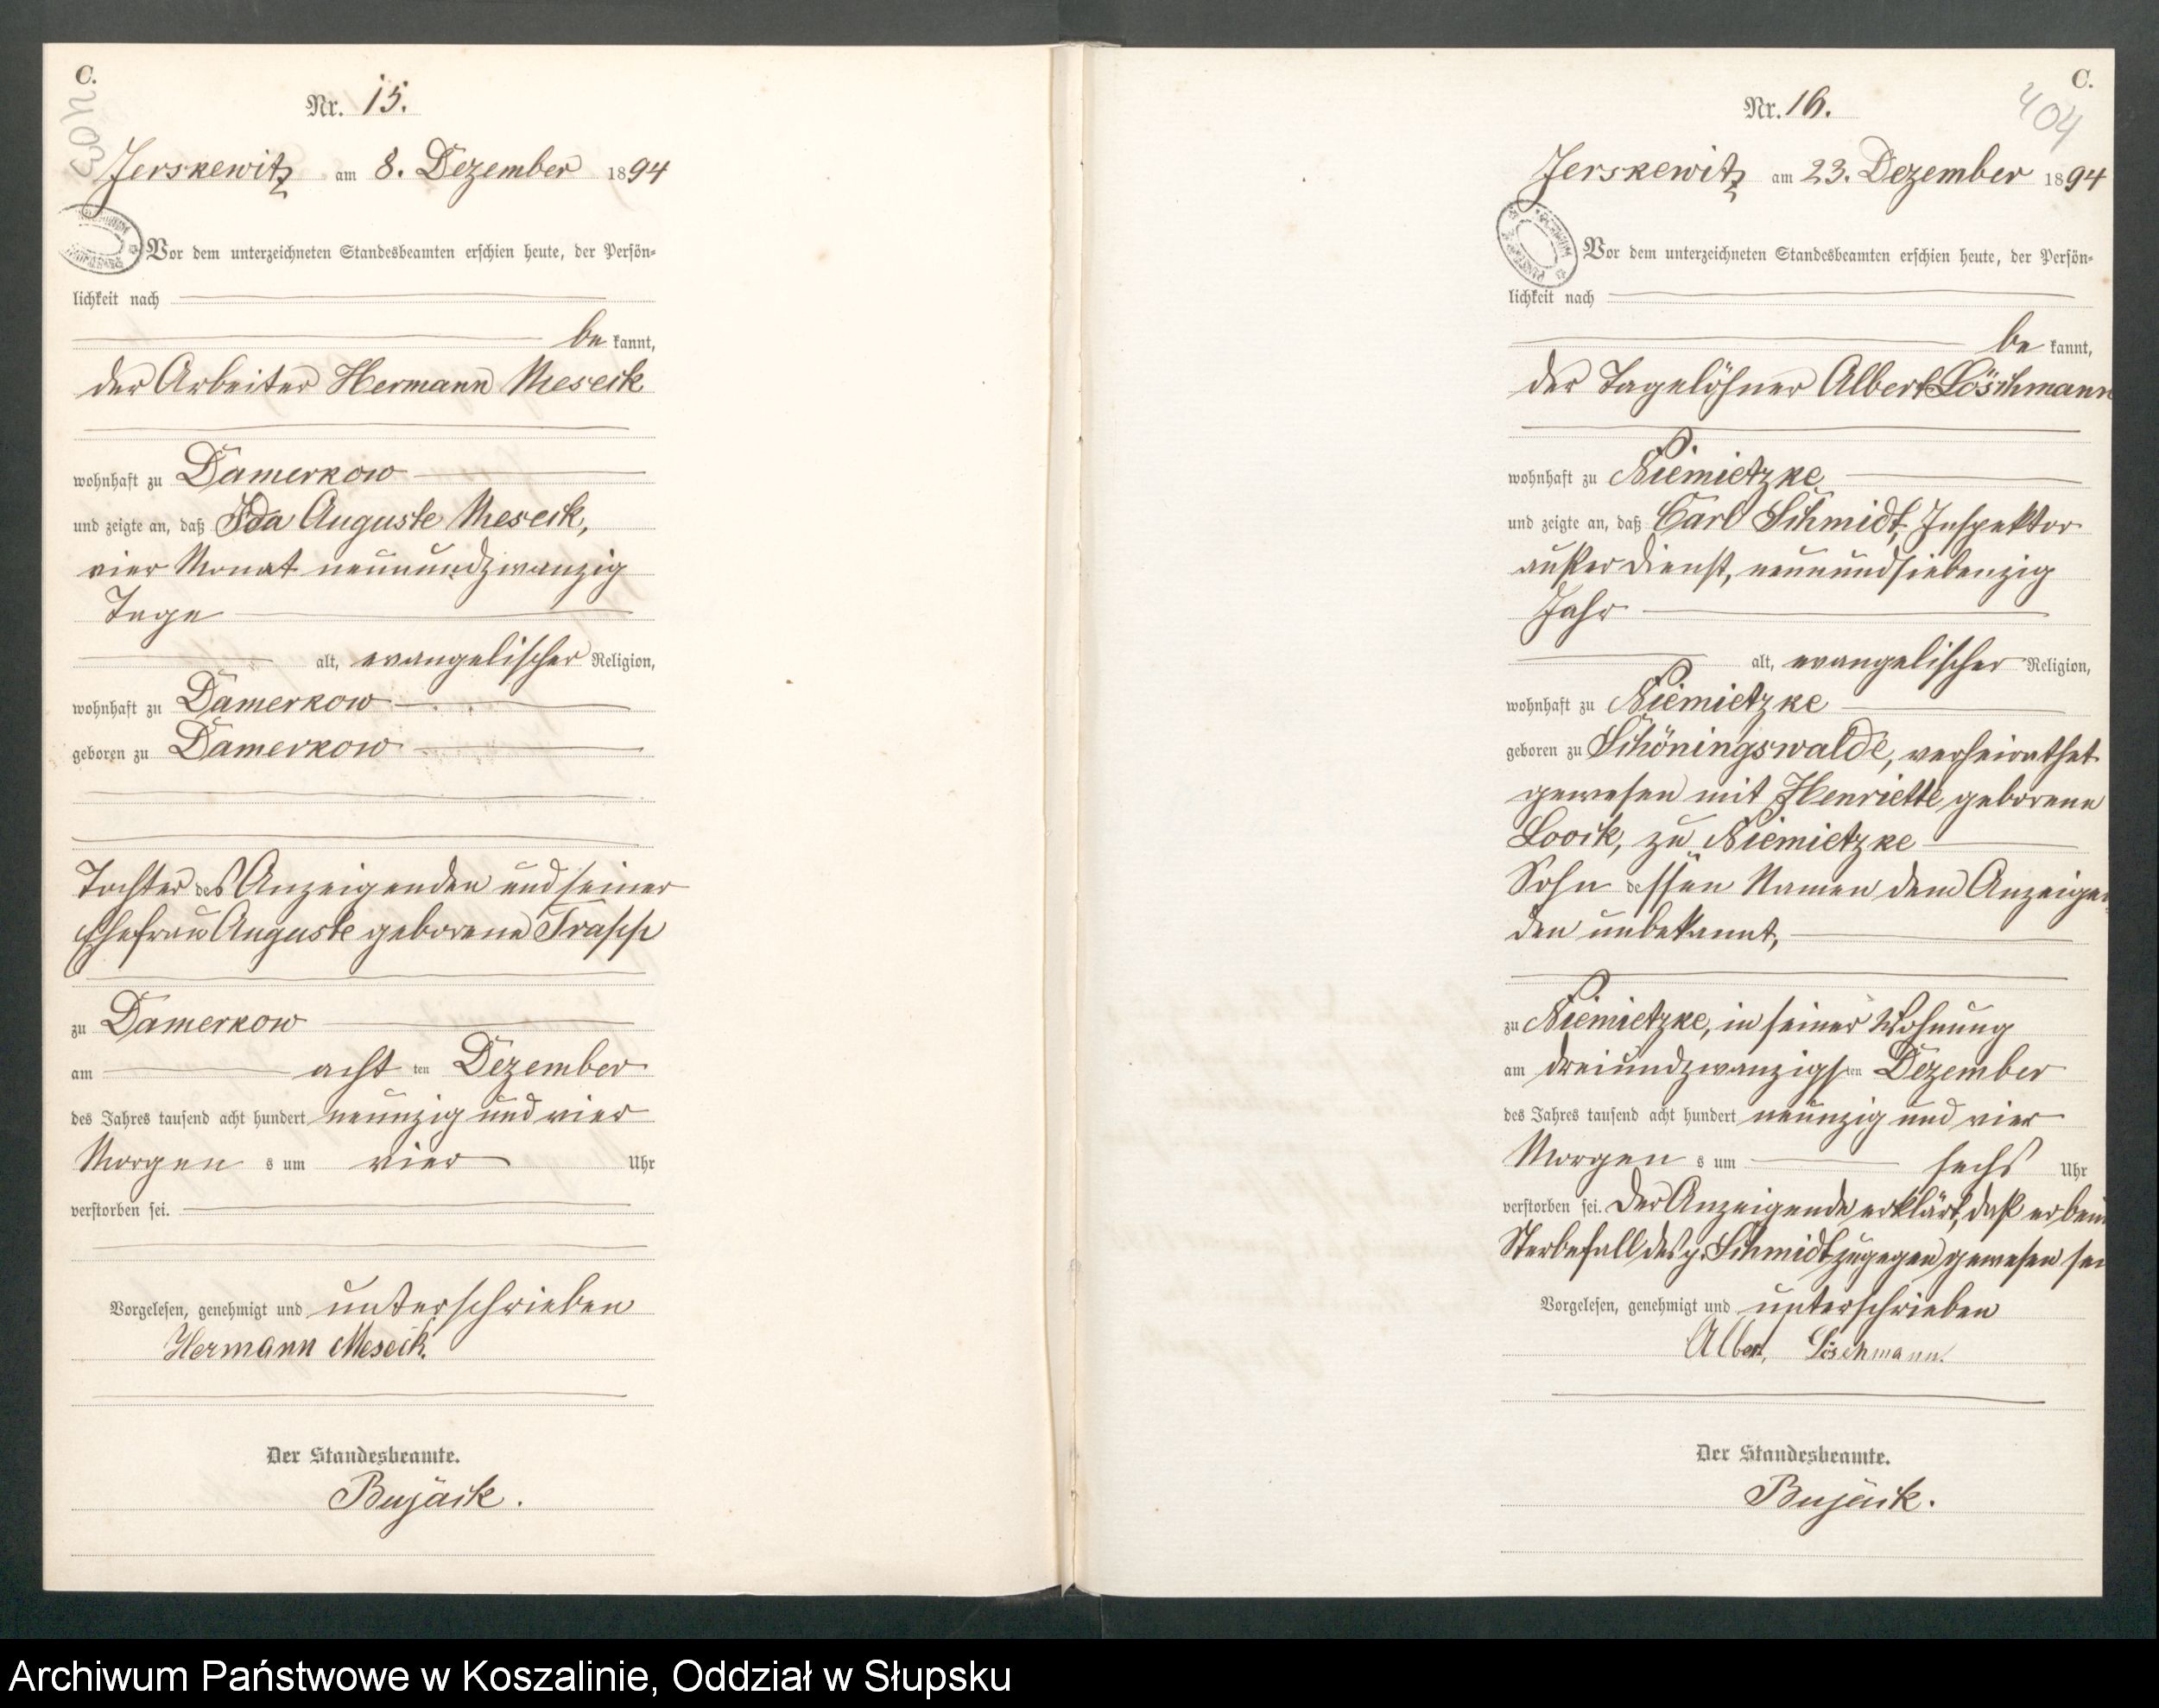 C.
403
Nr. 15.
Jerskewitz am 8. Dezember 1894
Vor dem unterzeichneten Standesbeamten erschien heute, der Persön-
lichkeit nach
be kannt,
der Arbeiter Hermann Meseck
wohnhaft zu Damerkow
und zeigte an, daß Ida Auguste Meseck,
vier Monat neunundzwanzig
Tage
alt, evangelischer Religion,
wohnhaft zu Damerkow
geboren zu Damerkow
Tochter des Anzeigenden und seiner
Ehefrau Auguste geborene Trapp
zu Damerkow
am acht ten Dezember
des Jahres tausend acht hundert neunzig und vier
Morgen s um vier Uhr
verstorben sei.
Vorgelesen, genehmigt und unterschrieben
Hermann Meseck.
Der Standesbeamte.
Bujäck.
C.
404
Nr. 16.
Jerskewitz am 23. Dezember 1894
Vor dem unterzeichneten Standesbeamten erschien heute, der Persön-
lichkeit nach
be kannt,
der Tagelöhner Albert Löschmann
wohnhaft zu Niemietzke
und zeigte an, daß Carl Schmidt, Inspektor
außer Dienst, neunundsiebenzig
Jahr
alt, evangelischer Religion,
wohnhaft zu Niemietzke
geboren zu Schöningswalde, verheirathet
gewesen mit Henriette geborene
Loock, zu Niemietzke
Sohn dessen Namen dem Anzeigen
den unbekannt,
zu Niemietzke, in seiner Wohnung
am dreiundzwanzigsten Dezember
des Jahres tausend acht hundert neunzig und vier
Morgen s um sechs Uhr
verstorben sei. Der Anzeigende erklärt, daß er beim
Sterbefall des p. Schmidt zugegen gewesen sei
Vorgelesen, genehmigt und unterschrieben
Albert Löschmann.
Der Standesbeamte.
Bujäck.
Archiwum Państwowe w Koszalinie, Oddział w Słupsku